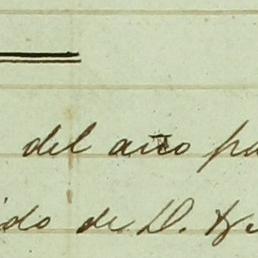 del año pa
ido de D.